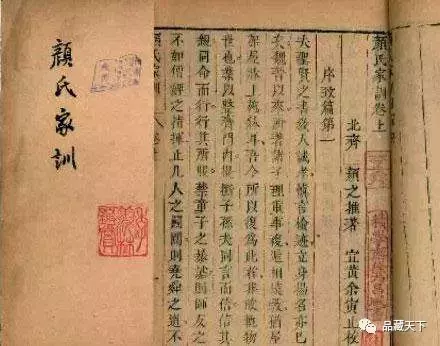 顏氏家訓
顏氏家訓卷上
北齊 顏之推著 宜黃余寅止校
序致篇第一
夫聖賢之書教人誠孝慎言檢迹立身揚名亦已
矣魏晉以來所著諸子理重事複遞相模斆猶屋
架屋牀上施牀耳吾今所以復為此者非敢軌物
世也業以整齊門內提撕子孫夫同言而信信其
親同命而行行其所服禁童子之暴謔則師友之
不如傅婢之指揮止凡人之鬬鬩則堯舜之道不
顏氏家訓
品藏天下